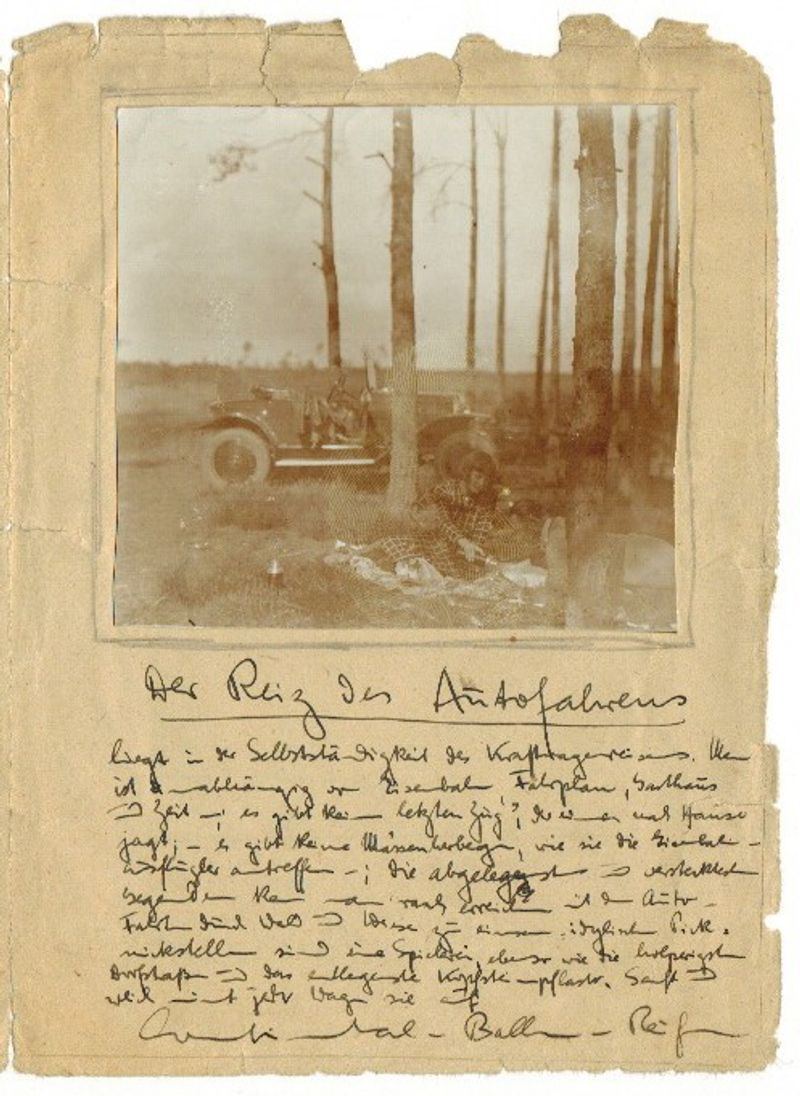 Der Reiz des Autofahrens
liegt in der Selbstständigkeit des Kraftwagenreisens. Man
ist unabhängig von Eisenbahn, Fahrplan, Gasthaus
und Zeit –; es gibt kein "letzten Zug", der einen nach Hause
jagt; – es gibt keine Massenherbergen, wie sie die Eisenbahn-
ausflügler antreffen –; die abgelegensten und verstecktesten
Gegenden kann man rasch erreichen mit dem Auto.
Fahrten durch Wald und Wiese zu einsam-idyllischen Pick-
nickstellen sind eine Spielerei, ebenso wie die holperigsten
Dorfstraßen und das entlegenste Kopfsteinpflaster. Sanft und
weich nimmt jeder Wagen sie auf
Continental-Ballon-Reifen